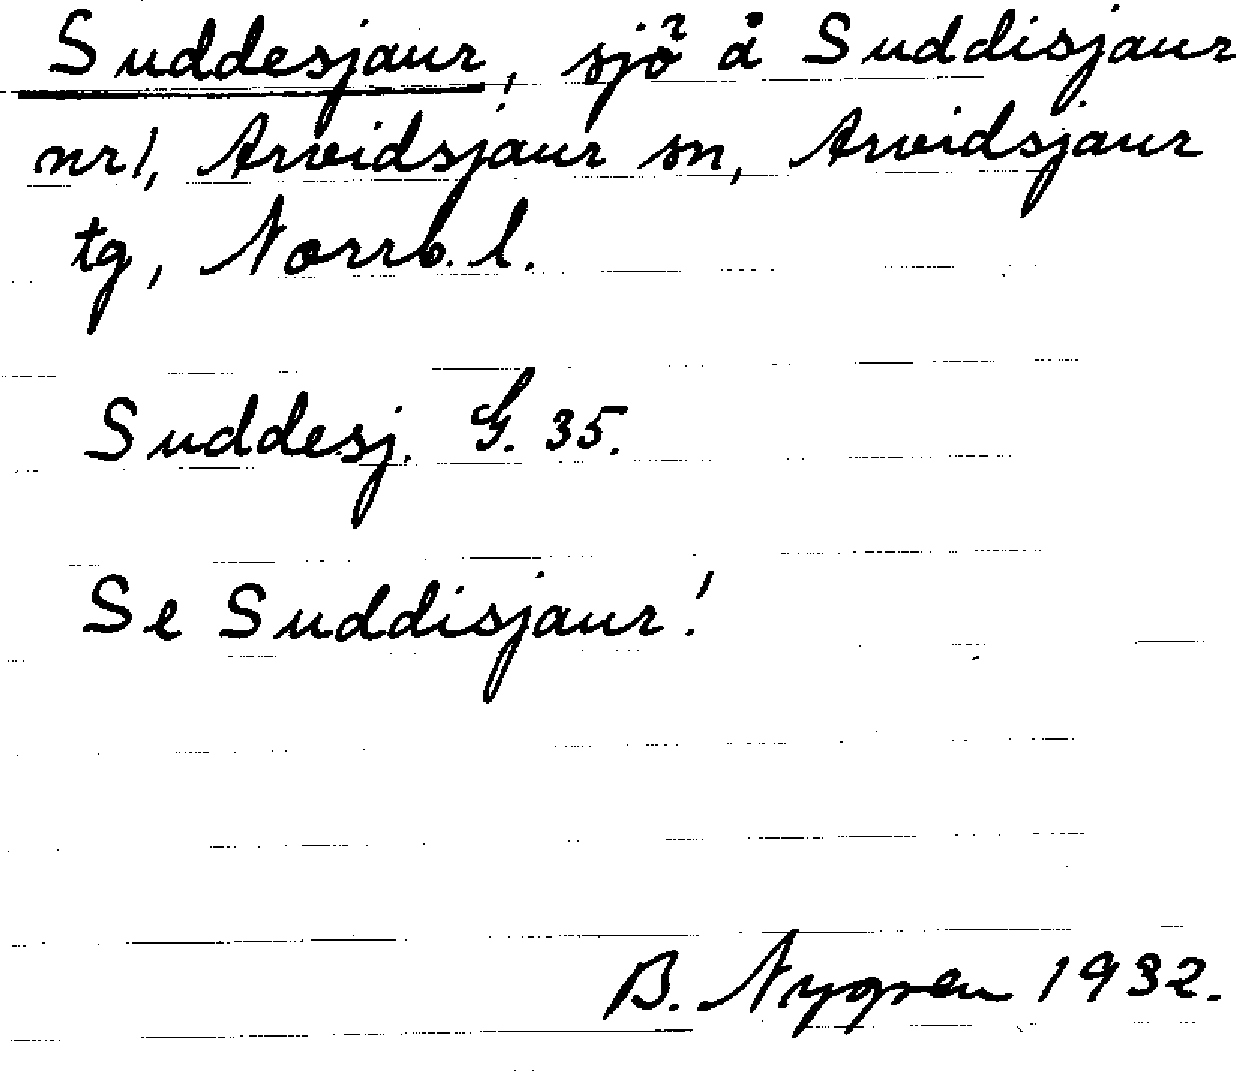 Suddesjaur, sjö å Suddisjaur
nr 1, Arvidsjaur sn, Arvidsjaur
tg, Norrb. l.
Suddesj. G. 35.
Se Suddisjaur!
B. Nygren 1932.